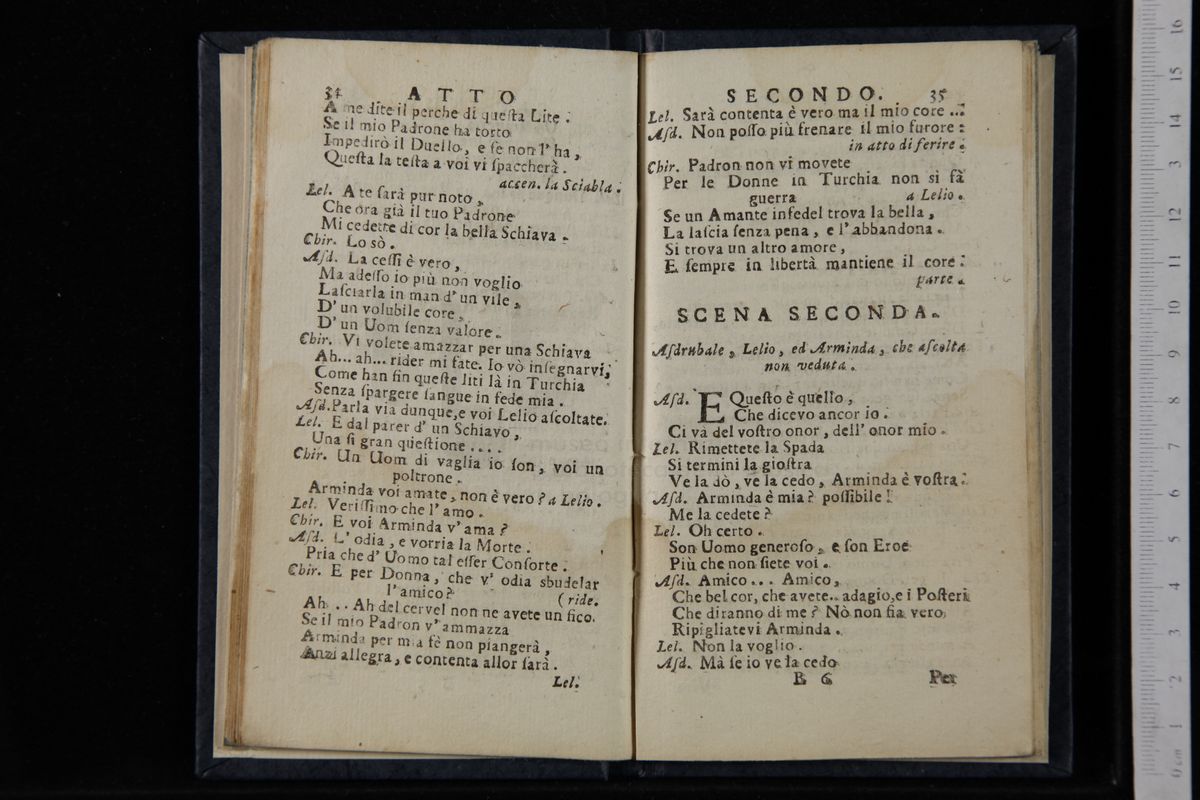 34 ATTO
A me dite il perche di queſta Lite.
Se il mio Padrone ha torto
Impedirò il Duello, e ſe non l'ha,
Queſta la teſta a voi vi ſpaccherà.
accen. la Sciabla.
Lel. A te ſarà pur noto,
Che ora già il tuo Padrone
Mi cedette di cor la bella Schiava.
Chir. Lo sò.
Aſd. La ceſſi è vero,
Ma adeſſo io più non voglio
Laſciarla in man d'un vile,
D'un volubile core,
D'un Uom ſenza valore.
Chir. Vi volete amazzar per una Schiava
Ah... ah... rider mi fate. Io vò inſegnarvi,
Come han fin queſte liti là in Turchia
Senza ſpargere ſangue in fede mia.
Aſd. Parla via dunque, e voi Lelio aſcoltate.
Lel. E dal parer d'un Schiavo,
Una ſi gran queſtione ....
Chir. Un Uom di vaglia io ſon, voi un
poltrone.
Arminda voi amate, non è vero? a Lelio.
Lel. Veriſſimo che l'amo.
Chir. E voi Arminda v'ama?
Aſd. L'odia, e vorria la Morte.
Pria che d'Uomo tal eſſer Conſorte.
Chir. E per Donna, che v'odia sbudelar
l'amico? (ride.
Ah... Ah del cervel non ne avete un fico.
Se il mio Padron v'ammazza
Arminda per mia fè non piangerà,
Anzi allegra, e contenta allor ſarà.
Lel.
SECONDO. 35
Lel. Sarà contenta è vero ma il mio core ...
Aſd. Non poſſo più frenare il mio furore:
in atto di ferire.
Chir. Padron non vi movete
Per le Donne in Turchia non si fà
guerra a Lelio.
Se un Amante infedel trova la bella,
La laſcia ſenza pena, e l'abbandona.
Si trova un altro amore,
E ſempre in libertà mantiene il core.
parte.
SCENA SECONDA.
Aſdrubale, Lelio, ed Arminda, che aſcolta
non veduta.
Aſd. E Queſto è quello,
Che dicevo ancor io.
Ci va del voſtro onor, dell'onor mio.
Lel. Rimettete la Spada
Si termini la gioſtra
Ve la dò, ve la cedo, Arminda è voſtra.
Aſd. Arminda è mia? poſſibile!
Me la cedete?
Lel. Oh certo.
Son Uomo generoſo, e ſon Eroe
Più che non ſiete voi.
Aſd. Amico... Amico,
Che bel cor, che avete.. adagio, e i Poſteri
Che diranno di me? Nò non fia vero,
Ripigliatevi Arminda.
Lel. Non la voglio.
Aſd. Mà ſe io ve la cedo
B 6 Per